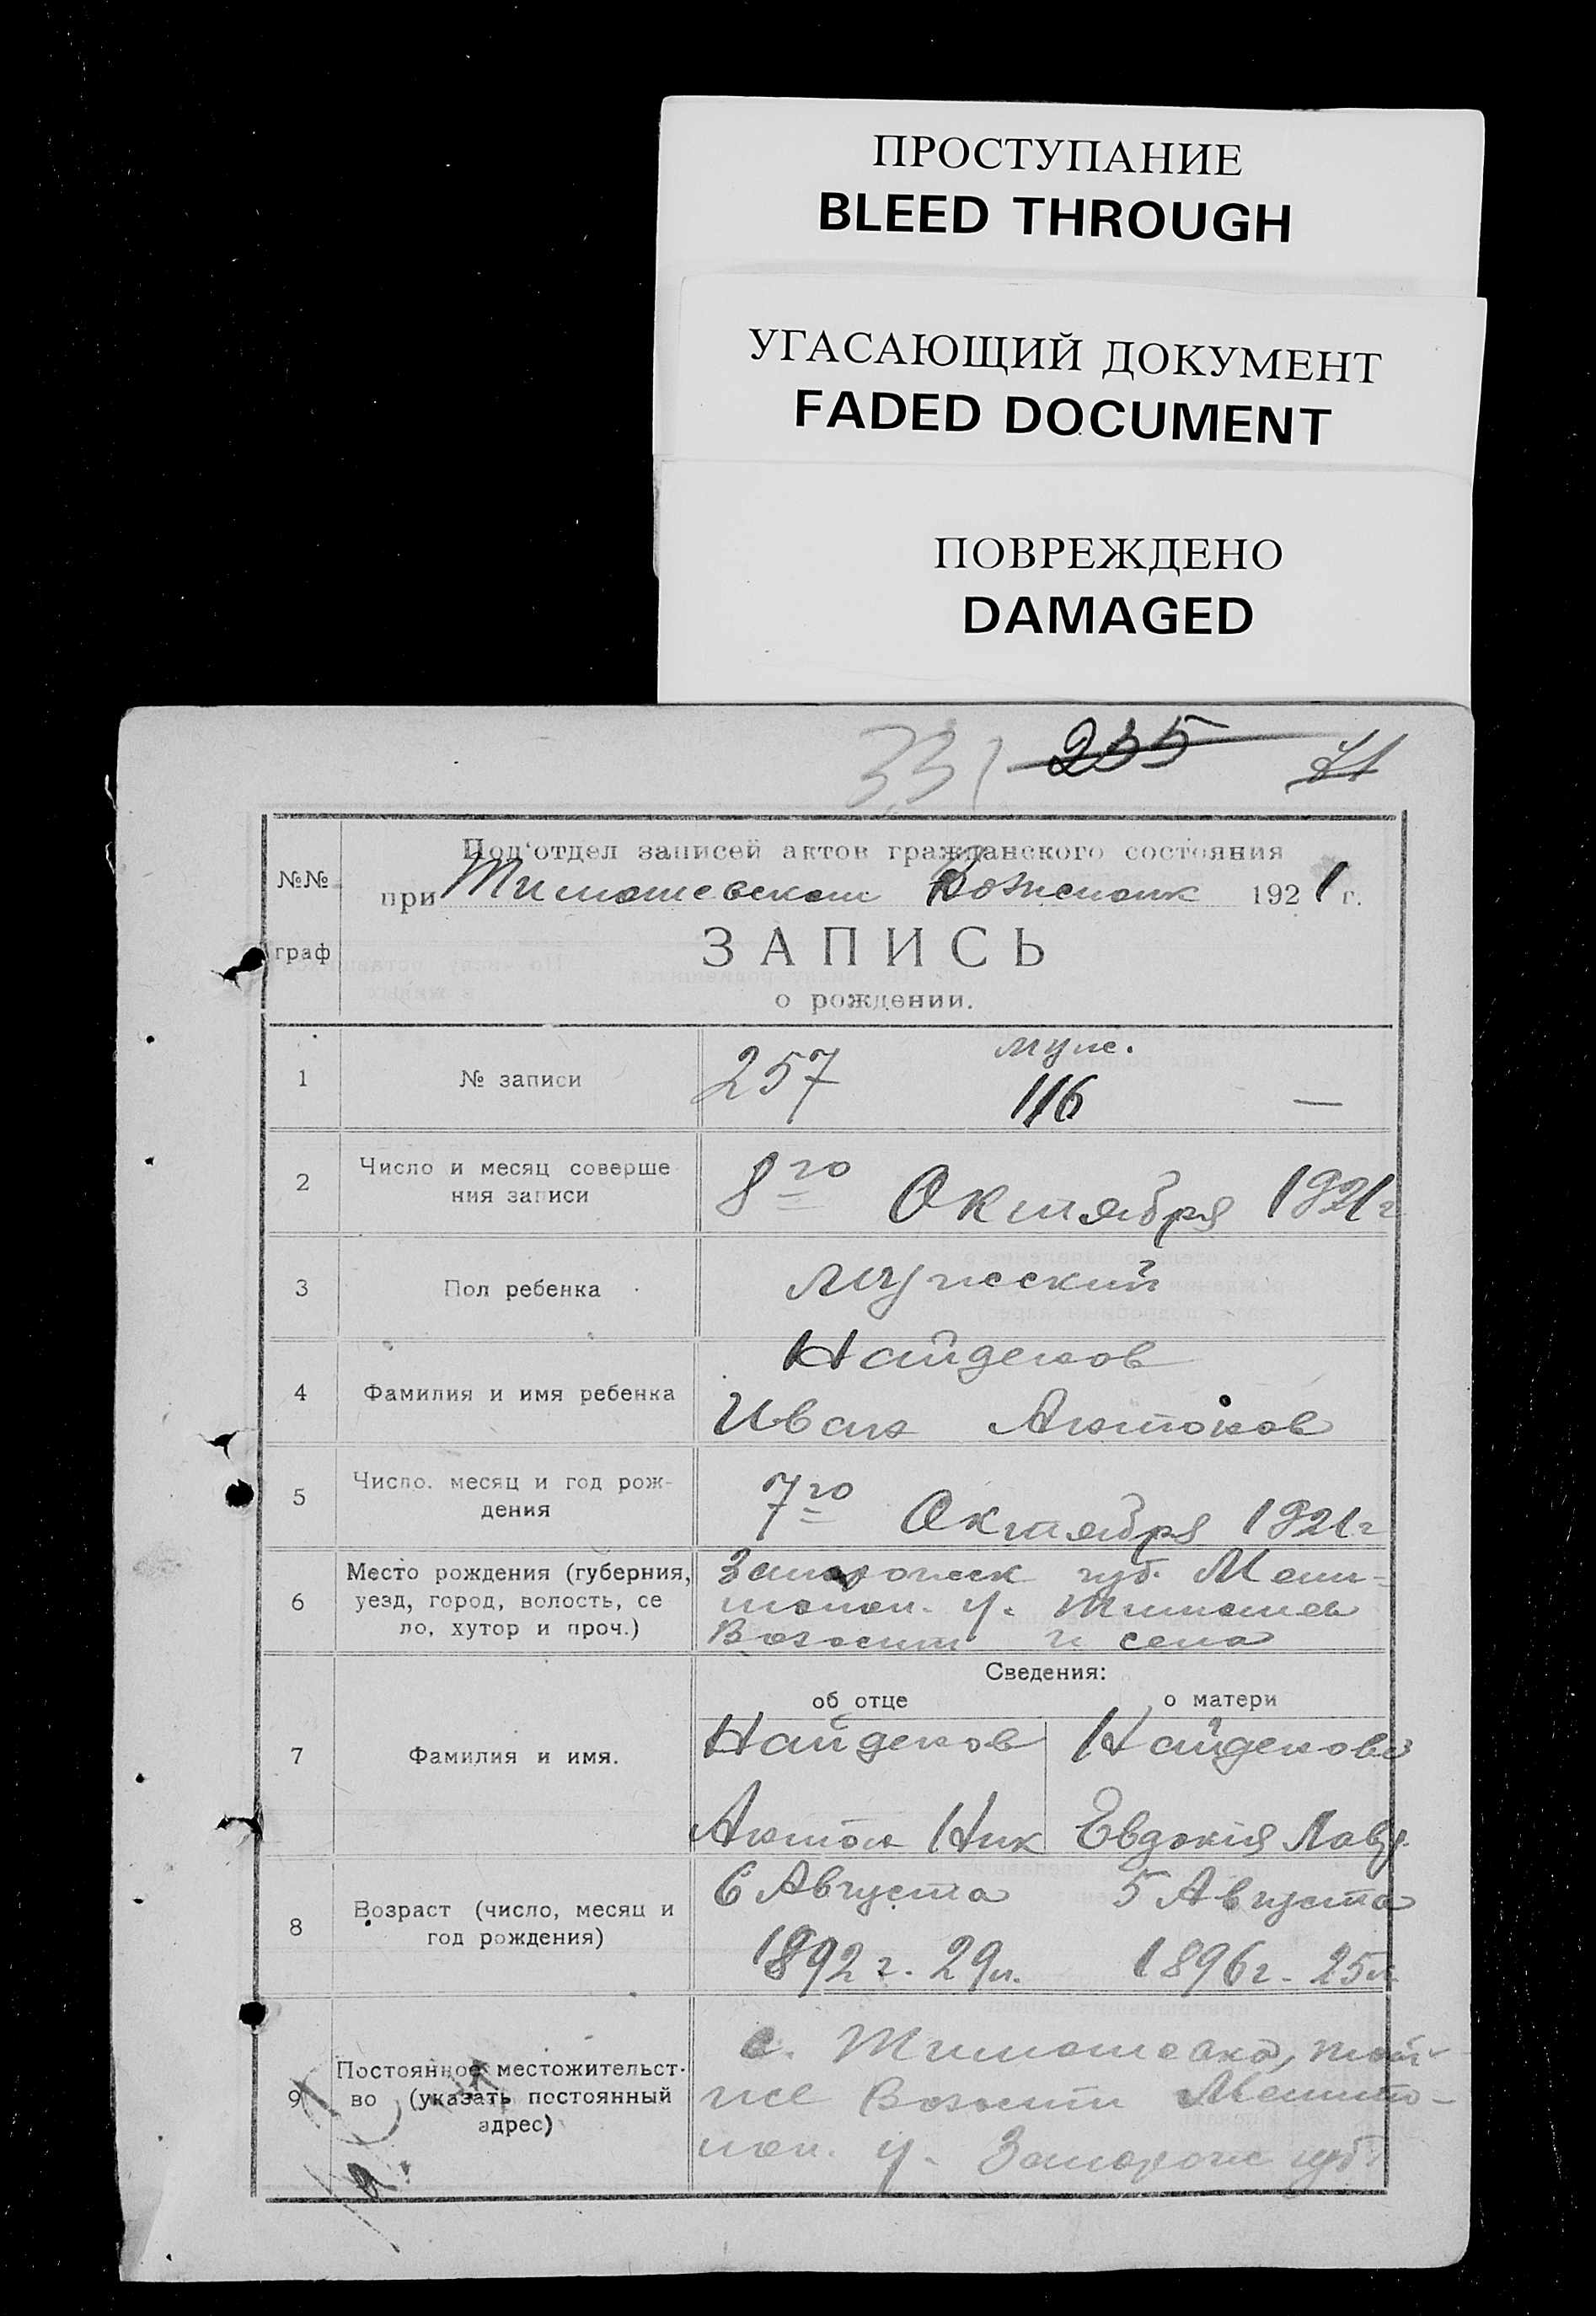 ПРОСТУПАНИЕ
BLEED THROUGH
УГАСАЮЩИЙ ДОКУМЕНТ
FADED DOCUMENT
ПОВРЕЖДЕНО
DAMAGED
331 235 71
№№ граф
Под'отдел записей актов гражданского состояния
при Тимошевском 1921 г.
ЗАПИСЬ
о рождении.
муж.
1 № записи 257 116 —
2 Число и месяц соверше
ния записи 8го Октября 1921 г
3 Пол ребенка мужеский
Найденов
4 Фамилия и имя ребенка
Иван Антонов
5 Число. месяц и год рож-
дения 7го Октября 1921 г
6 Место рождения (губерния,
уезд, город, волость, се
ло, хутор и проч.)
Запорожск губ. Мели-
топол. у. Тимошев
Волости и села
Сведения:
об отце о матери
7 Фамилия и имя.
Найденов Найденова
Антон Ник Евдокія Лавр.
8 Возраст (число, месяц и
год рождения)
6 Августа 5 Августа
1892 г. 29 л. 1896 г. 25 л.
9 Постоянное местожительст-
во (указать постоянный
адрес)
с. Тимошевка, той-
же Волости Мелито-
пол. у. Запорож губ.